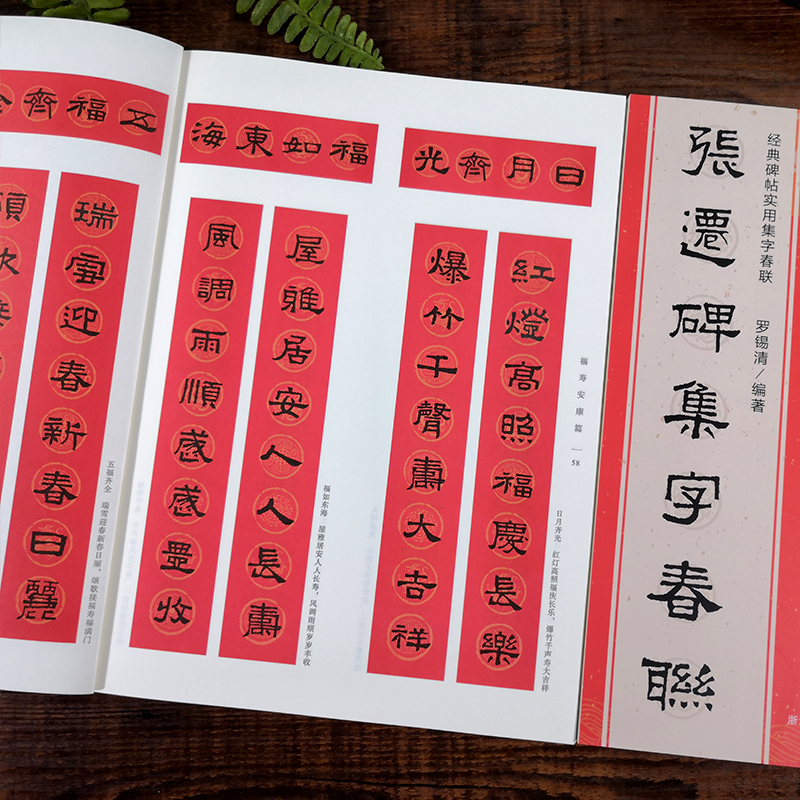 張遷碑集字春聯
经典碑帖实用集字春联
罗锡清/编著
浙
日月齊光
紅燈高照福慶長樂
爆竹千聲壽大吉祥
日月齐光 红灯高照福庆长乐，爆竹千声寿大吉祥
福寿安康篇
58
福如東海
屋雅居安人人長壽
風調雨順歲歲豐收
福如东海 屋雅居安人人长寿，风调雨顺岁岁丰收
五福齊全
瑞雪迎春新春日麗
五福齐全 瑞雪迎春新春日丽，颂歌接福寿福满门